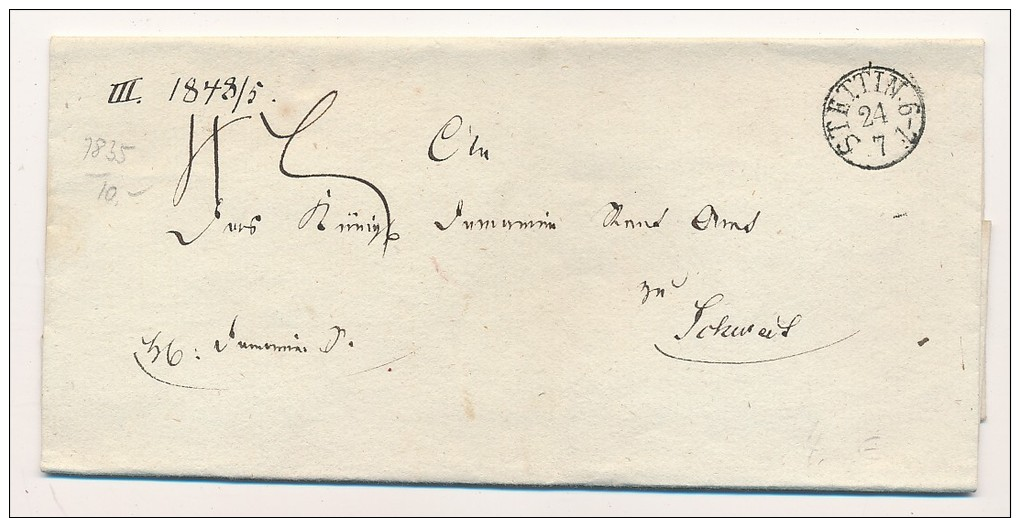 III. 1848/5.
STETTIN. 6-7
24
7
1835
10.-
An
Das Königl Domainen Rent Amt
zu
Schwedt
H: Domainen S.